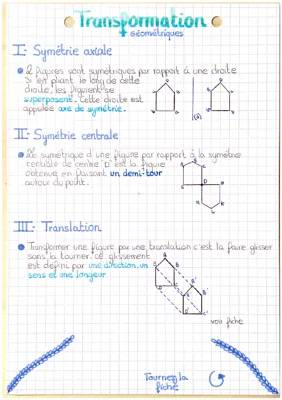 Transformation
géométriques
I: Symétrie axiale
2 figures sont symétriques par rapport à une droite
Si en pliant le long de cette
droite, les figures se
superposent. Cette droite est
appelée axe de symétrie.
(d)
II: Symétrie centrale
Le symétrique d'une figure par rapport à la symétrie
centrale de centre D est la figure
obtenue en faisant un demi-tour
autour du point.
D
III: Translation
Transformer une figure par une translation c'est la faire glisser
sans la tourner. Ce glissement
est défini par une direction, un
sens et une longueur
voir fiche
Tournez la
fiche